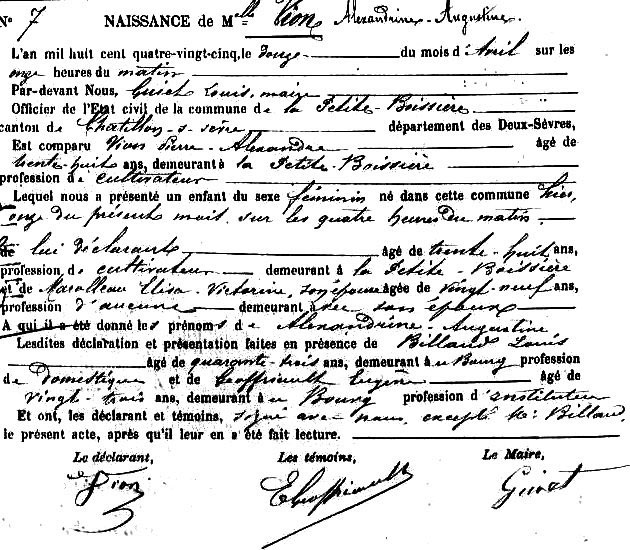 N° 7 NAISSANCE DE Mlle Vion Alexandrine-Augustine.
L'an mil huit cent quatre-vingt-cinq, le douze du mois d'Avril sur les
onze heures du matin
Par-devant Nous, Louis, maire
Officier de l'Etat civil de la commune de la Petite-Boissière
canton de Chatillon-s-sèvre département des Deux-Sèvres,
Est comparu Vion Pierre-Alexandre âgé de
trente-huit ans, demeurant à la Petite-Boissière
profession de cultivateur
Lequel nous a présenté un enfant du sexe féminin né dans cette commune hier,
onze du présent mois, sur les quatre heures du matin,
de lui déclarant âgé de trente-huit ans,
profession de cultivateur demeurant à la Petite-Boissière
et de Marolleau Elisa Victorine, son épouse âgée de vingt-neuf ans,
profession d'aucune demeurant avec son époux
A qui il a été donné les prénoms de Alexandrine-Augustine
Lesdites déclaration et présentation faites en présence de Billaud Louis
âgé de quarante-trois ans, demeurant à u Bourg profession
de domestique et de Geoffriault Eugène âgé de
vingt-trois ans, demeurant à u Bourg profession d'instituteur
Et ont, les déclarant et témoins, signé avec nous, excepté le Billaud,
le présent acte, après qu'il leur en a été fait lecture.
Le déclarant, Les témoins, Le Maire,
Vion EGeoffriault